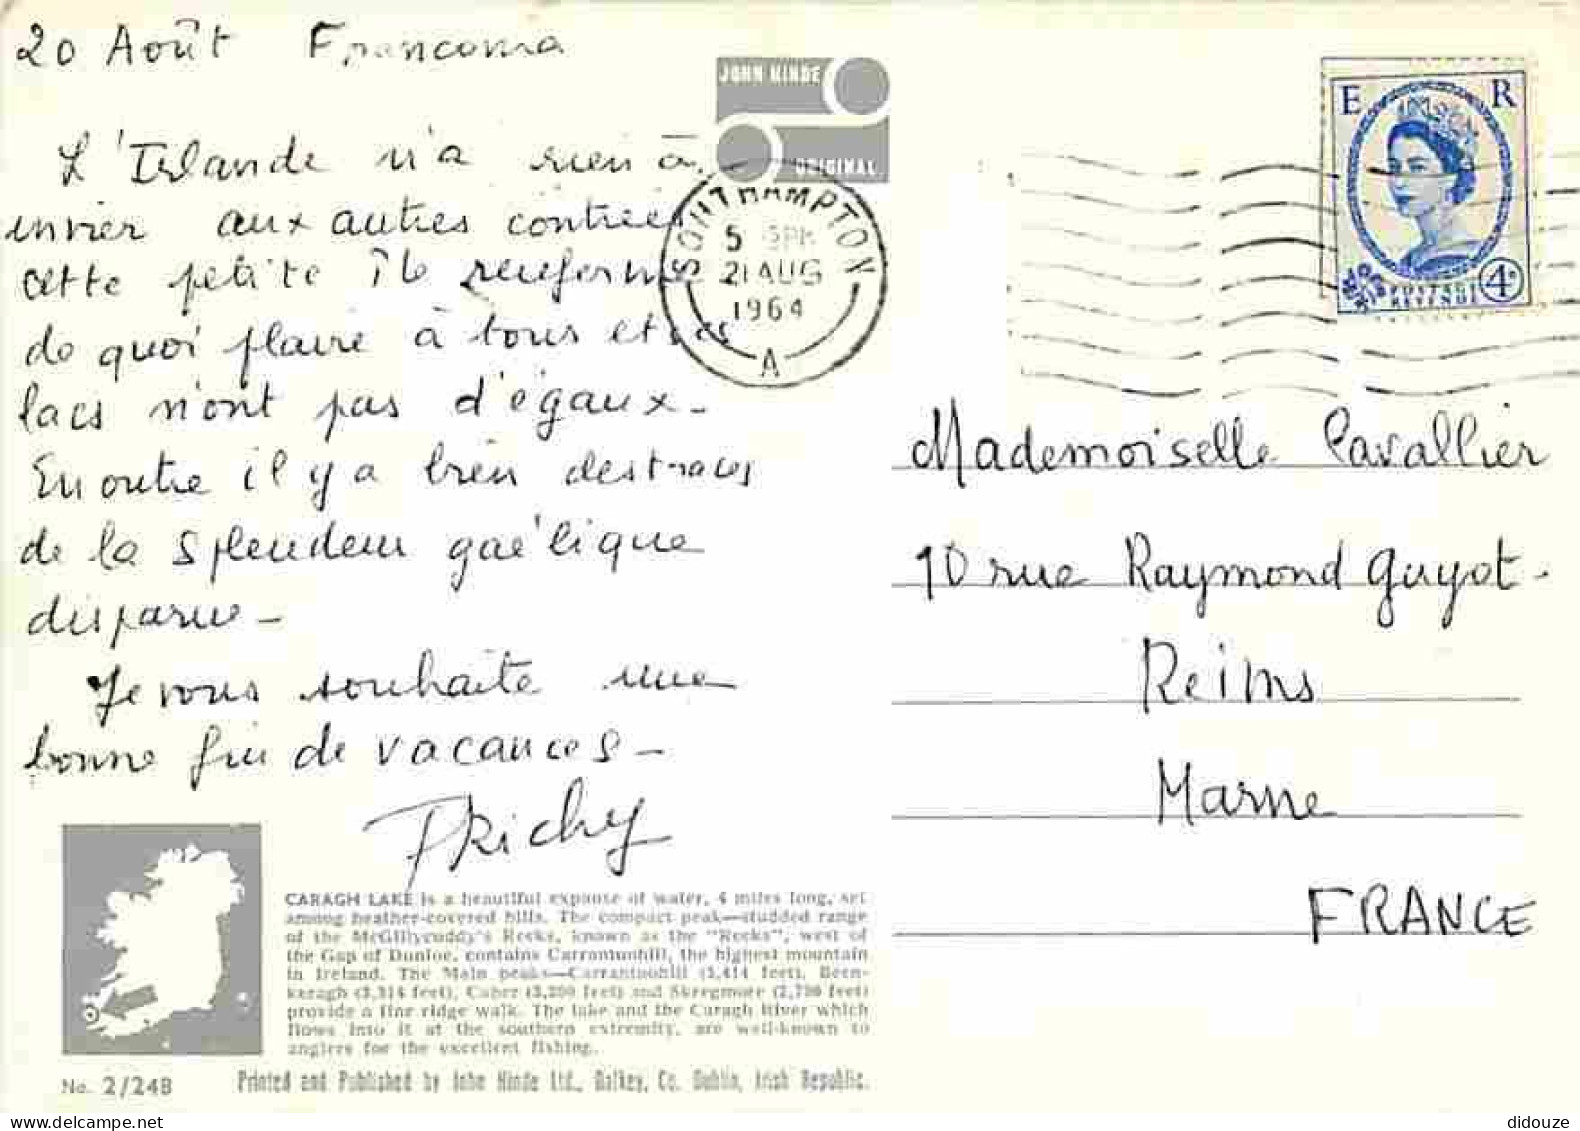 20 Août Franconia
L'Irlande n'a rien à
envier aux autres contrées
cette petite île renferme
de quoi plaire à tous et ses
lacs n'ont pas d'égaux -
En outre il y a bien des traces
de la splendeur gaélique
disparue -
Je vous souhaite une
bonne fin de vacances -
JOHN HINDE
ORIGINAL
SOUTHAMPTON
5 15PM
21 AUG
1964
A
E R
POSTAGE
REVENUE
4D
Mademoiselle Cavallier
10 rue Raymond Guyot -
Reims
Marne
FRANCE
CARAGH LAKE is a beautiful expanse of water, 4 miles long, set
among heather-covered hills. The compact peak—studded range
of the McGillycuddy's Reeks, known as the "Reeks", west of
the Gap of Dunloe, contains Carrantuohill, the highest mountain
in Ireland. The Main peaks—Carrantuohill (3,414 feet), Been-
keragh (3,314 feet), Caher (3,200 feet) and Skregmore (2,790 feet)
provide a fine ridge walk. The lake and the Caragh River which
flows into it at the southern extremity, are well-known to
anglers for the excellent fishing.
No. 2/24B
Printed and Published by John Hinde Ltd., Dalkey, Co. Dublin, Irish Republic.
didouze